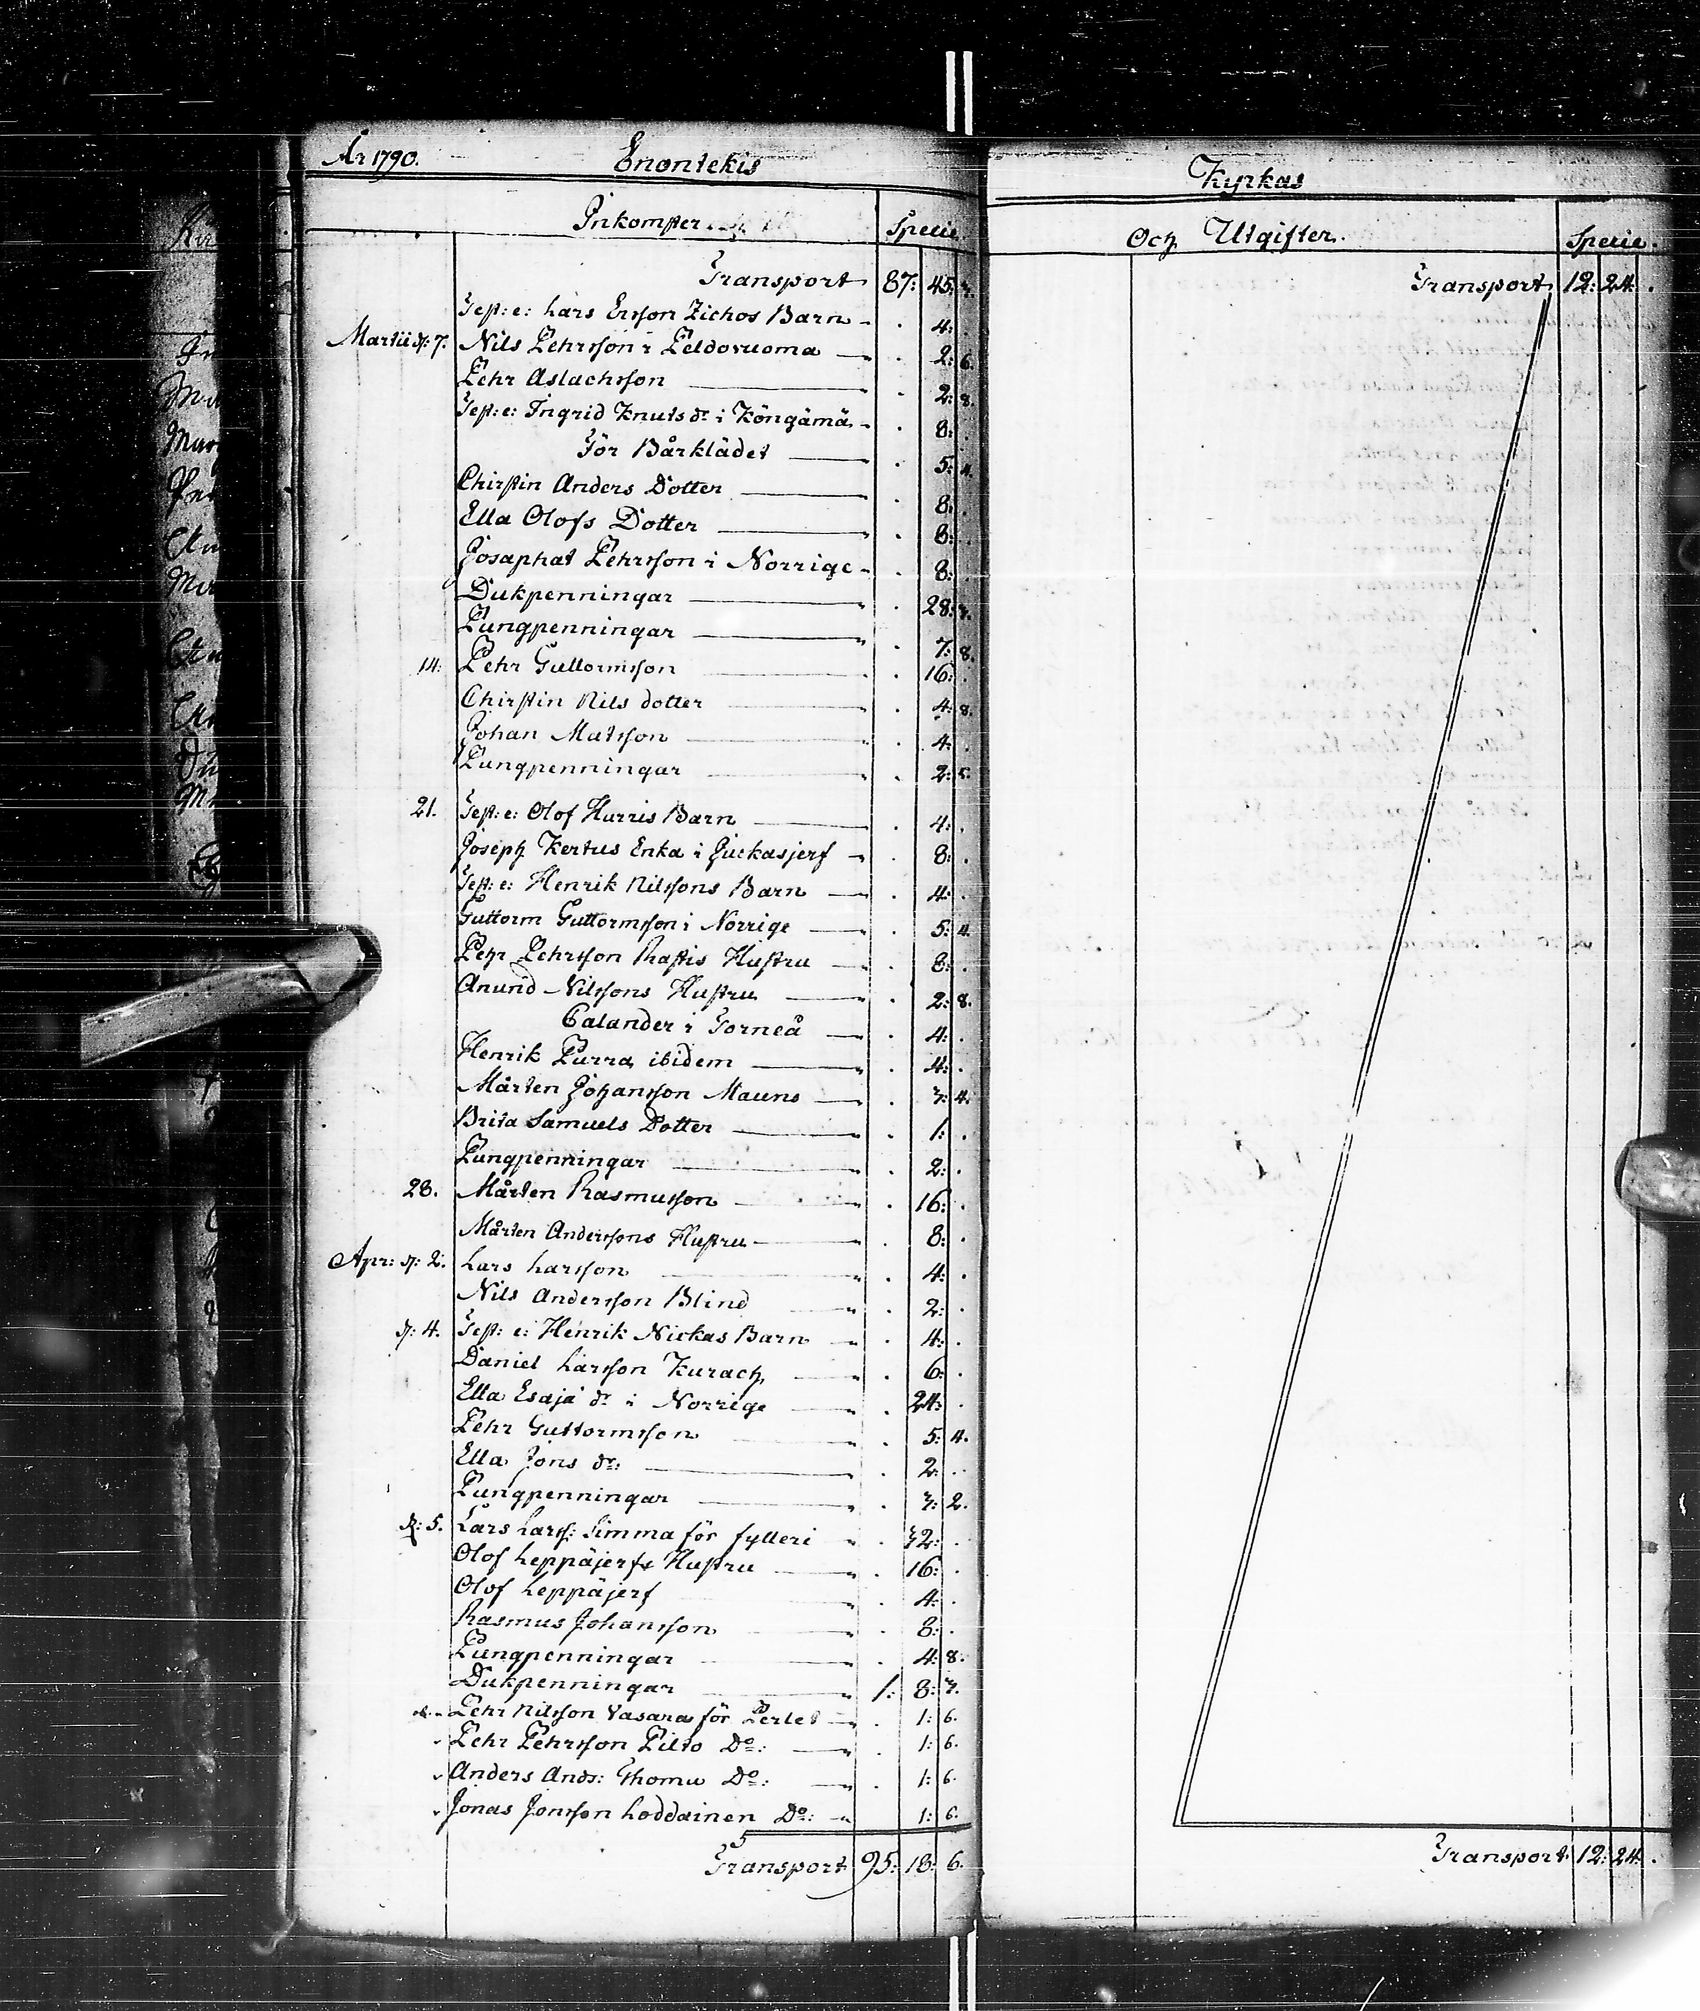 År 1790. Enontekis
Inkomster Specie
Transport 87: 45:
Test: e: Lars Ersson Zichos Barn . 4: .
Martii d: 7. Nils Pehrsson i Peldovuoma . 2: 6.
Pehr Aslachsson . 2: 8.
Test: e: Ingrid Knuts dr i Köngämä . 8: .
För Bårklädet . 5: 4.
Chirstin Anders Dotter . 8: .
Ella Olofs Dotter . 8: .
Josaphat Pehrsson i Norrige . 8: .
Dukpenningar . 28: 7.
Pungpenningar . 7: 8.
14: Pehr Guttormsson . 16: .
Chirstin Nils dotter . 4: 8.
Johan Matsson . 4: .
Pungpenningar . 2: 5.
21. Test: e: Olof Hurris Barn . 4: .
Joseph Kertus Enka i Juckasjerf . 8: .
Test: e: Henrik Nilssons Barn . 4: .
Guttorm Guttormsson i Norrige . 5: 4.
Pehr Pehrsson Rastis Hustru . 8: .
Anund Nilssons Hustru . 2: 8.
Calander i Torneå . 4: .
Henrik Purra ibidem . 4: .
Mårten Johansson Mauns . 3: 4.
Brita Samuels Dotter . 1: .
Pungpenningar . 2: .
28. Mårten Rasmusson . 16: .
Mårten Anderssons Hustru . 8: .
Apr: d: 2. Lars Larsson . 4: .
Nils Andersson Blind . 2: .
d: 4. Test: e: Henrik Nickas Barn . 4: .
Daniel Larsson Kurach . 6: .
Ella Esajæ dr i Norrige . 24: .
Pehr Guttormsson . 5: 4.
Ella Jons dr: . 2: .
Pungpenningar . 3: 2.
d: 5. Lars Larss: Simma för fylleri . 32: .
Olof Leppäjerfs Hustru . 16: .
Olof Leppäjerf . 4: .
Rasmus Johansson . 8: .
Pungpenningar . 4: 8.
Dukpenningar 1: 8: 7.
Pehr Nilsson Vasara för Perlet . 1: 6.
Pehr Pehrsson Pilto Do: . 1: 6.
Anders Ands: Thomu Do: . 1: 6.
Jonas Jonsson Loddainen Do: 1: 6.
Transport 95: 18: 6.
Kyrkas
Och Utgifter. Specie.
Transport 12: 24: .
Transport 12: 24: .